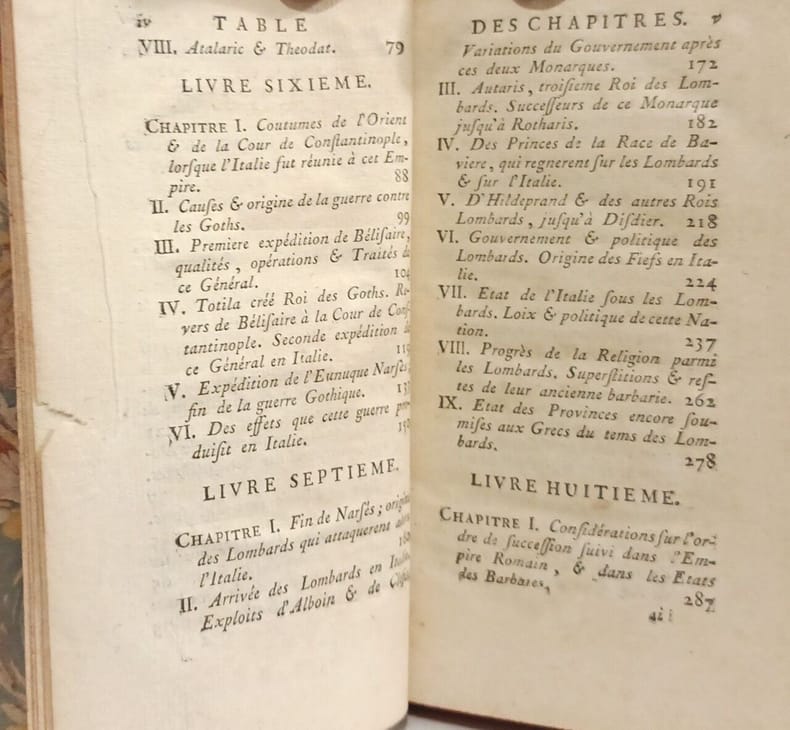 iv TABLE
VIII. Atalaric & Theodat. 79
LIVRE SIXIEME.
CHAPITRE I. Coutumes de l'Orient
& de la Cour de Conſtantinople,
lorſque l'Italie fut réunie à cet Em-
pire. 88
II. Cauſes & origine de la guerre contre
les Goths. 99
III. Premiere expédition de Béliſaire,
qualités, opérations & Traités de
ce Général. 104
IV. Totila créé Roi des Goths. Re-
vers de Béliſaire à la Cour de Conſ-
tantinople. Seconde expédition de
ce Général en Italie.
V. Expédition de l'Eunuque Narſés,
fin de la guerre Gothique.
VI. Des effets que cette guerre pro-
duiſit en Italie.
LIVRE SEPTIEME.
CHAPITRE I. Fin de Narſés; origine
des Lombards qui attaquerent alors
l'Italie.
II. Arrivée des Lombards en Italie.
Exploits d'Alboin & de
DES CHAPITRES. v
Variations du Gouvernement après
ces deux Monarques. 172
III. Autaris, troiſieme Roi des Lom-
bards. Succeſſeurs de ce Monarque
juſqu'à Rotharis. 182
IV. Des Princes de la Race de Ba-
viere, qui regnerent ſur les Lombards
& ſur l'Italie. 191
V. D'Hildeprand & des autres Rois
Lombards, juſqu'à Diſdier. 218
VI. Gouvernement & politique des
Lombards. Origine des Fiefs en Ita-
lie. 224
VII. Etat de l'Italie ſous les Lom-
bards. Loix & politique de cette Na-
tion. 237
VIII. Progrès de la Religion parmi
les Lombards. Superſtitions & reſ-
tes de leur ancienne barbarie. 262
IX. Etat des Provinces encore ſou-
miſes aux Grecs du tems des Lom-
bards. 278
LIVRE HUITIEME.
CHAPITRE I. Conſidérations ſur l'or-
dre de ſucceſſion ſuivi dans l'Em-
pire Romain, & dans les Etats
des Barbares, 287